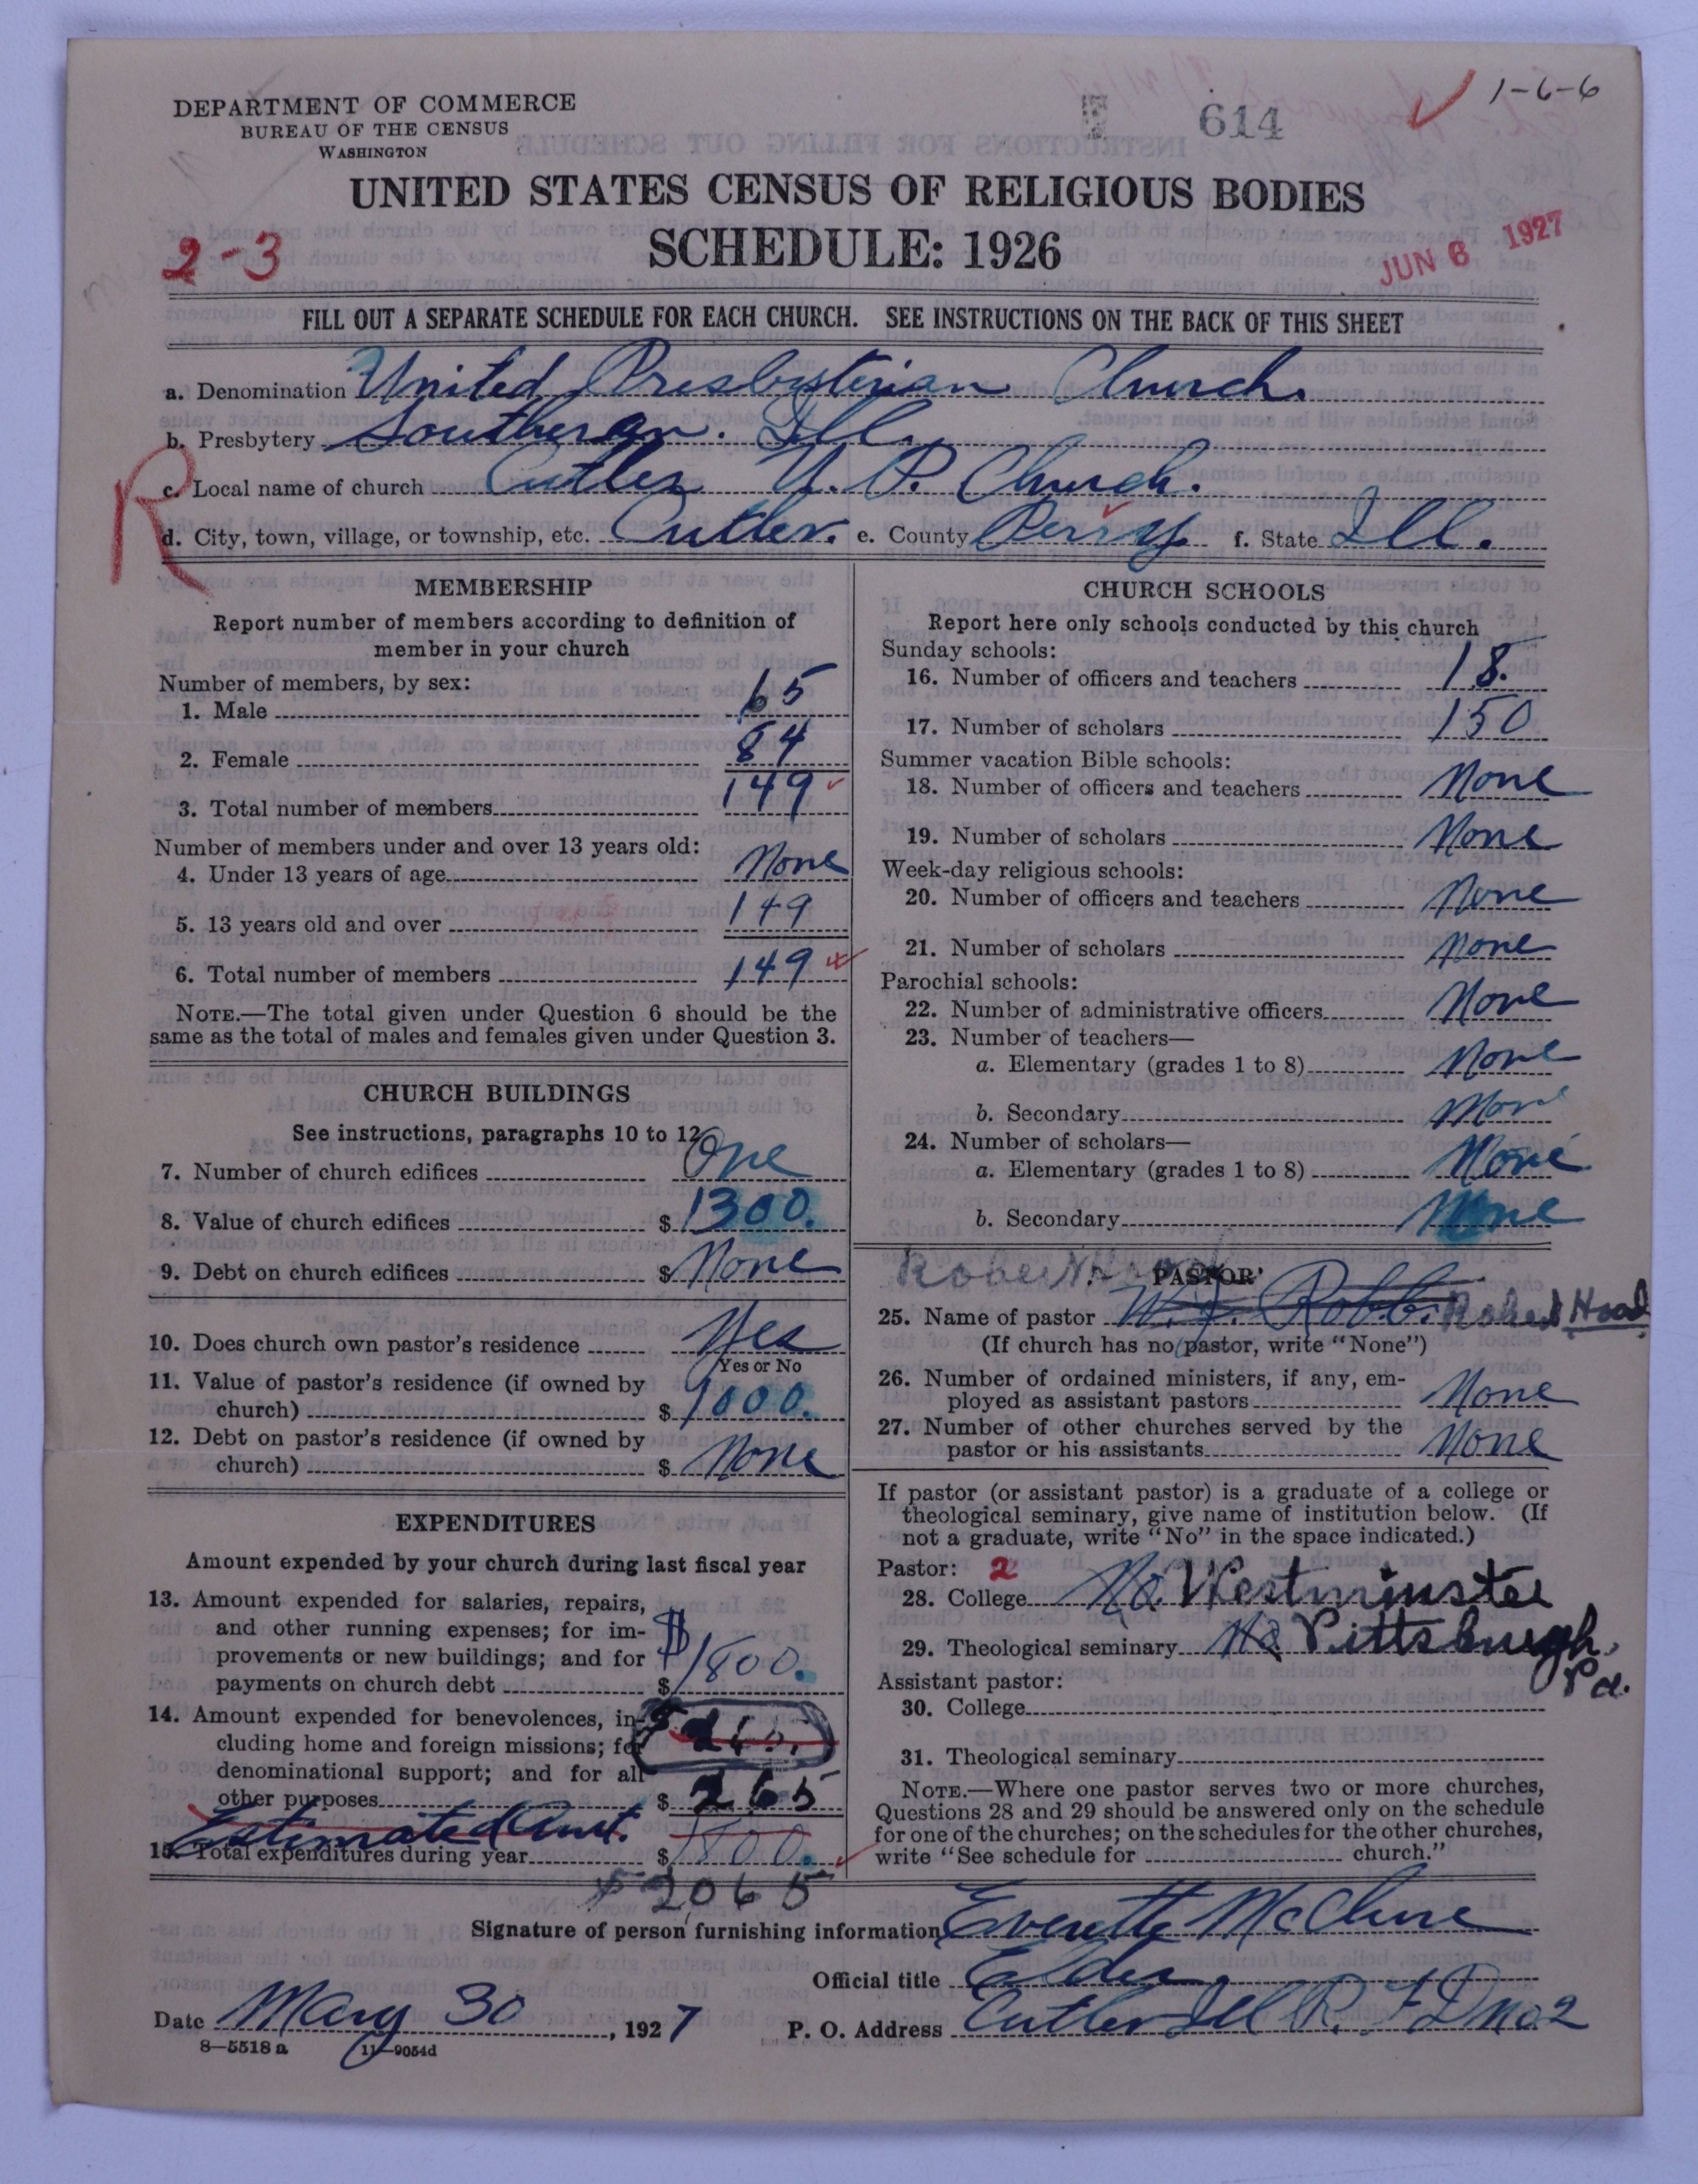 DEPARTMENT OF COMMERCE
BUREAU OF THE CENSUS
WASHINGTON
E 614
1-6-6
UNITED STATES CENSUS OF RELIGIOUS BODIES
2-3
SCHEDULE: 1926
JUN 6 1927
FILL OUT A SEPARATE SCHEDULE FOR EACH CHURCH. SEE INSTRUCTIONS ON THE BACK OF THIS SHEET
R
a. Denomination United Presbyterian Church.
b. Presbytery Southern. Ill.
c. Local name of church Cutler U. P. Church.
d. City, town, village, or township, etc. Cutler. e. County Perry f. State Ill.
MEMBERSHIP
Report number of members according to definition of
member in your church
Number of members, by sex:
1. Male 65
2. Female 84
3. Total number of members 149
Number of members under and over 13 years old:
4. Under 13 years of age None
5. 13 years old and over 149
6. Total number of members 149
NOTE.—The total given under Question 6 should be the
same as the total of males and females given under Question 3.
CHURCH BUILDINGS
See instructions, paragraphs 10 to 12
7. Number of church edifices One
8. Value of church edifices $ 1300.
9. Debt on church edifices $ None
10. Does church own pastor's residence Yes
Yes or No
11. Value of pastor's residence (if owned by
church) $ 1000.
12. Debt on pastor's residence (if owned by
church) $ None
EXPENDITURES
Amount expended by your church during last fiscal year
13. Amount expended for salaries, repairs,
and other running expenses; for im-
provements or new buildings; and for
payments on church debt $ $1800.
14. Amount expended for benevolences, in-
cluding home and foreign missions; for
denominational support; and for all
other purposes $ 265
Estimated Amt.
15. Total expenditures during year $ 1800.
$2065
CHURCH SCHOOLS
Report here only schools conducted by this church
Sunday schools:
16. Number of officers and teachers 18.
17. Number of scholars 150
Summer vacation Bible schools:
18. Number of officers and teachers None
19. Number of scholars None
Week-day religious schools:
20. Number of officers and teachers None
21. Number of scholars None
Parochial schools:
22. Number of administrative officers None
23. Number of teachers—
a. Elementary (grades 1 to 8) None
b. Secondary None
24. Number of scholars—
a. Elementary (grades 1 to 8) None
b. Secondary None
Robert
PASTOR
25. Name of pastor W. J. Robb. Robert Hood
(If church has no pastor, write "None")
26. Number of ordained ministers, if any, em-
ployed as assistant pastors None
27. Number of other churches served by the
pastor or his assistants None
If pastor (or assistant pastor) is a graduate of a college or
theological seminary, give name of institution below. (If
not a graduate, write "No" in the space indicated.)
Pastor: 2
28. College No Westminster
29. Theological seminary No Pittsburgh,
Pa.
Assistant pastor:
30. College
31. Theological seminary
NOTE.—Where one pastor serves two or more churches,
Questions 28 and 29 should be answered only on the schedule
for one of the churches; on the schedules for the other churches,
write "See schedule for church."
Signature of person furnishing information Everette McClure
Official title Elder
Date May 30, 1927 P. O. Address Cutler Ill R. F D no 2
8—5518 a 11—9054d